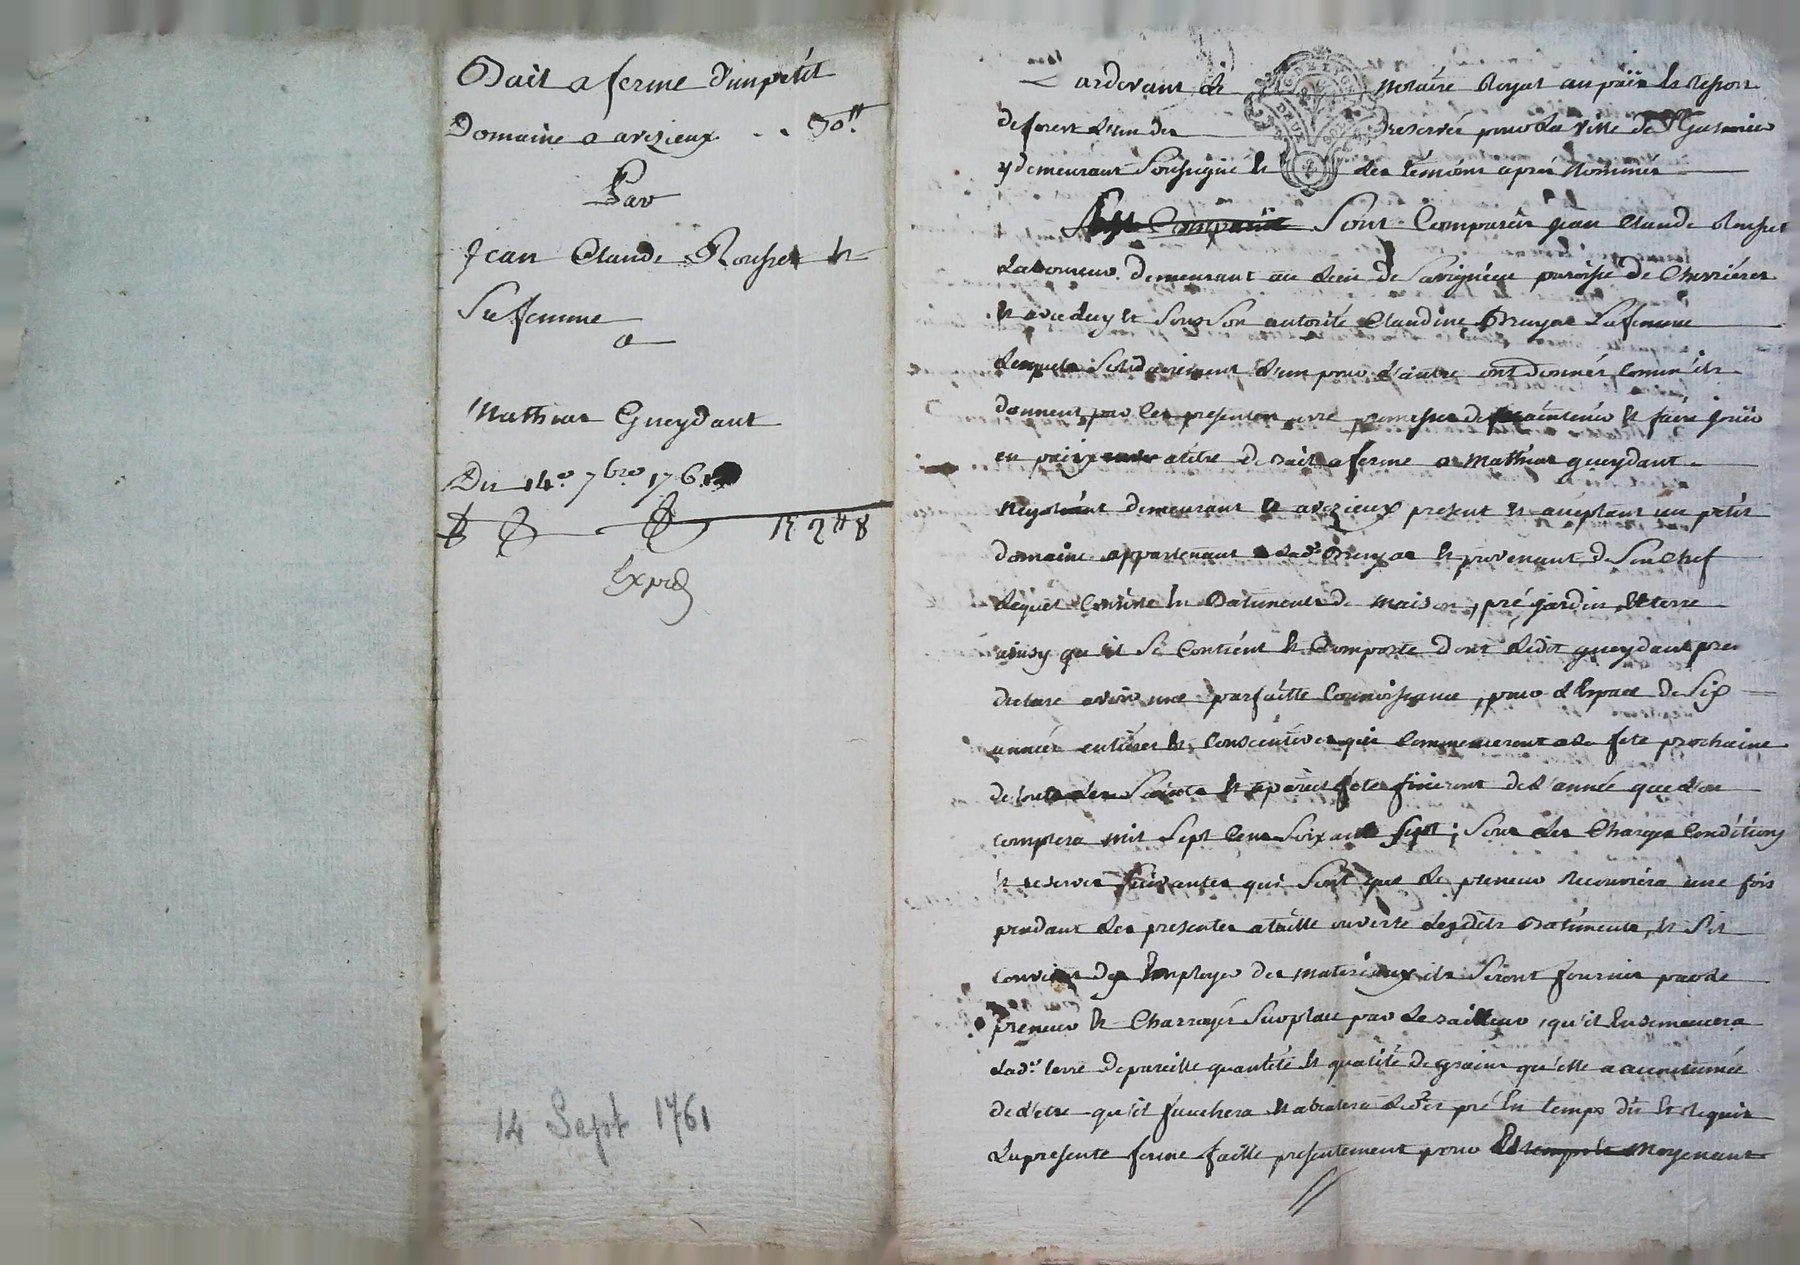 Bail a ferme d'un petit
Domaine a avezieux . . 50ᵗᵗ
Par
Jean Claude Rousset et
Sa femme
a
Mathias Gueydant
Du 14.e 7bre 1761
Exped
14 Sept 1761
Pardevant le notaire Royal au païs et Ressort
de forest l'un des reservés pour la ville de St Galmier
y demeurant Soussigné et les temoins après nommés
Sont Comparus Jean Claude Rousset
Laboureur demeurant au lieu de Savignieu paroisse de Chevrières
et avec luy et Sous Son autorité Claudine Bruyas Sa femme
Lesquels Solidairement l'un pour l'autre ont donnés comm'ils
donnent par ces presentes avec promesse de maintenir et faire jouir
en paix a titre de bail a ferme a Mathias gueydant
Negotiant demeurant a avezieux present et acceptant un petit
domaine appartenant a lad.e Bruyas et provenant de Son Chef
Lequel Consiste en Batiments de maison, pré jardin, et terre
ainsy qu'il Se Contient et Comporte dont ledit gueydant pre
declare avoir une parfaitte Connoissance, pour l'Espace de Six
années entieres et Consécutives qui Commenceront a la fete prochaine
de toutes les Saints et a pareil fete finiront de l'année que l'on
comptera mil Sept Cent Soixante Sept; Sous les Charges Conditions
et reserves Suivantes qui Sont que le preneur recouvrira une fois
pendant les presentes a taille ouverte lesdits Batiments, et S'il
convient d'y Employer des materiaux ils Seront fournis par le
preneur et Charroyés Sur place par le bailleur, qu'il Ensemencera
Lad.e terre de pareille quantité et qualité de grains qu'elle a accoutumée
de l'etre qu'il fauchera led.t pré En temps dû et requis
La presente ferme faitte presentement pour Moyenant